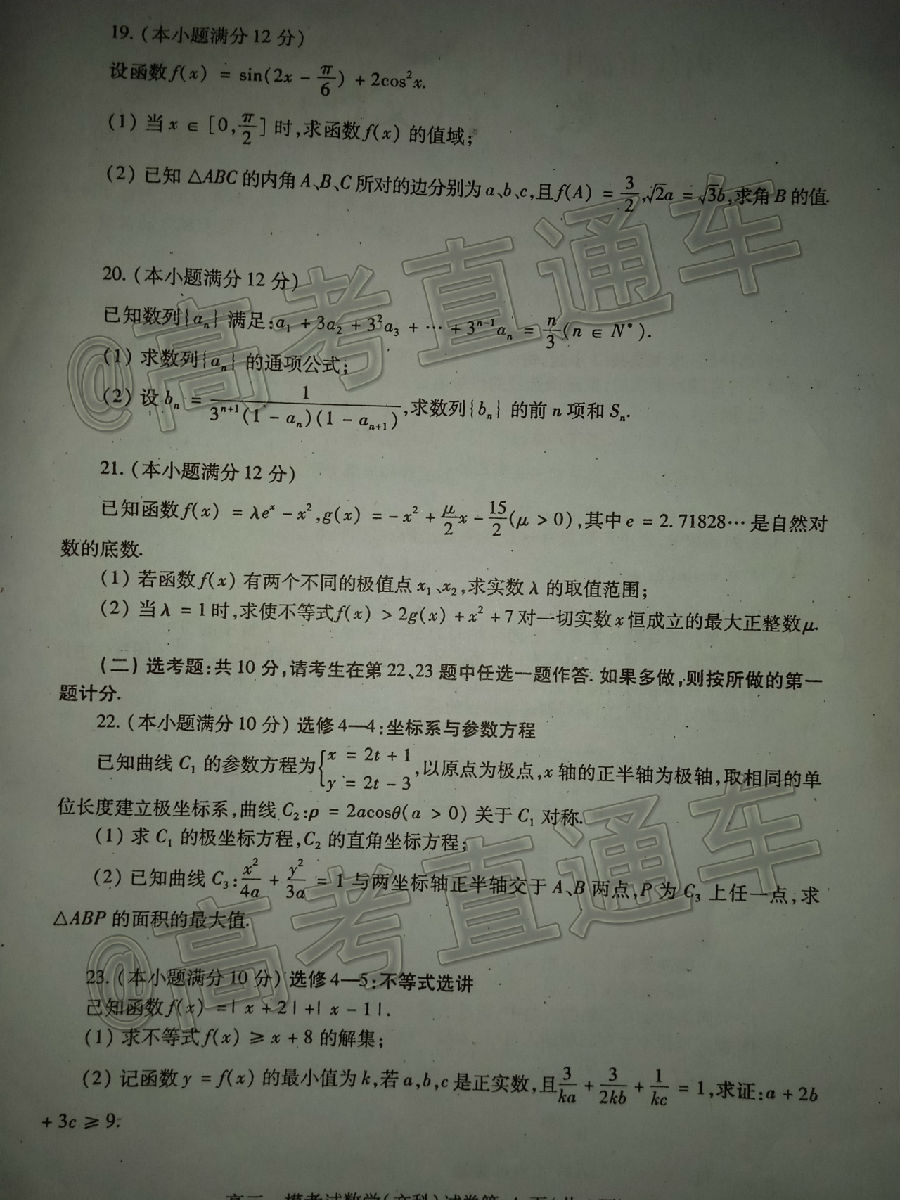 19. (本小题满分12分)
设函数f(x) = sin(2x - π/6) + 2cos²x.
(1) 当x ∈ [0, π/2] 时,求函数f(x) 的值域;
(2) 已知 △ABC 的内角A、B、C所对的边分别为a、b、c,且f(A) = 3/2, √2a = √3b,求角B的值.
20. (本小题满分12分)
已知数列{aₙ} 满足:a₁ + 3a₂ + 3²a₃ + ⋯ + 3ⁿ⁻¹aₙ = n/3 (n ∈ N*).
(1) 求数列{aₙ} 的通项公式;
(2) 设 bₙ = 1/(3ⁿ⁺¹(1 - aₙ)(1 - aₙ₊₁)),求数列{bₙ} 的前n项和Sₙ.
21. (本小题满分12分)
已知函数f(x) = λeˣ - x², g(x) = - x² + μ/2 x - 15/2 (μ > 0),其中e = 2.71828⋯ 是自然对
数的底数.
(1) 若函数f(x) 有两个不同的极值点 x₁、x₂,求实数 λ 的取值范围;
(2) 当λ = 1时,求使不等式f(x) > 2g(x) + x² + 7对一切实数x恒成立的最大正整数μ.
(二) 选考题:共10分,请考生在第22、23题中任选一题作答. 如果多做,则按所做的第一
题计分.
22. (本小题满分10分) 选修4—4:坐标系与参数方程
已知曲线 C₁ 的参数方程为{x = 2t + 1, y = 2t - 3,以原点为极点,x轴的正半轴为极轴,取相同的单
位长度建立极坐标系,曲线C₂:ρ = 2acosθ(a > 0) 关于C₁ 对称.
(1) 求 C₁ 的极坐标方程,C₂ 的直角坐标方程;
(2) 已知曲线 C₃: x²/4a + y²/3a = 1与两坐标轴正半轴交于A、B两点,P为C₃ 上任一点,求
△ABP的面积的最大值.
23. (本小题满分10分) 选修4—5:不等式选讲
已知函数f(x) =| x + 2| +| x - 1|.
(1) 求不等式f(x) ≥ x + 8的解集;
(2) 记函数y = f(x) 的最小值为k,若a,b,c是正实数,且 3/ka + 3/2kb + 1/kc = 1,求证:a + 2b
+ 3c ≥ 9.
@高考直通车
@高考直通车